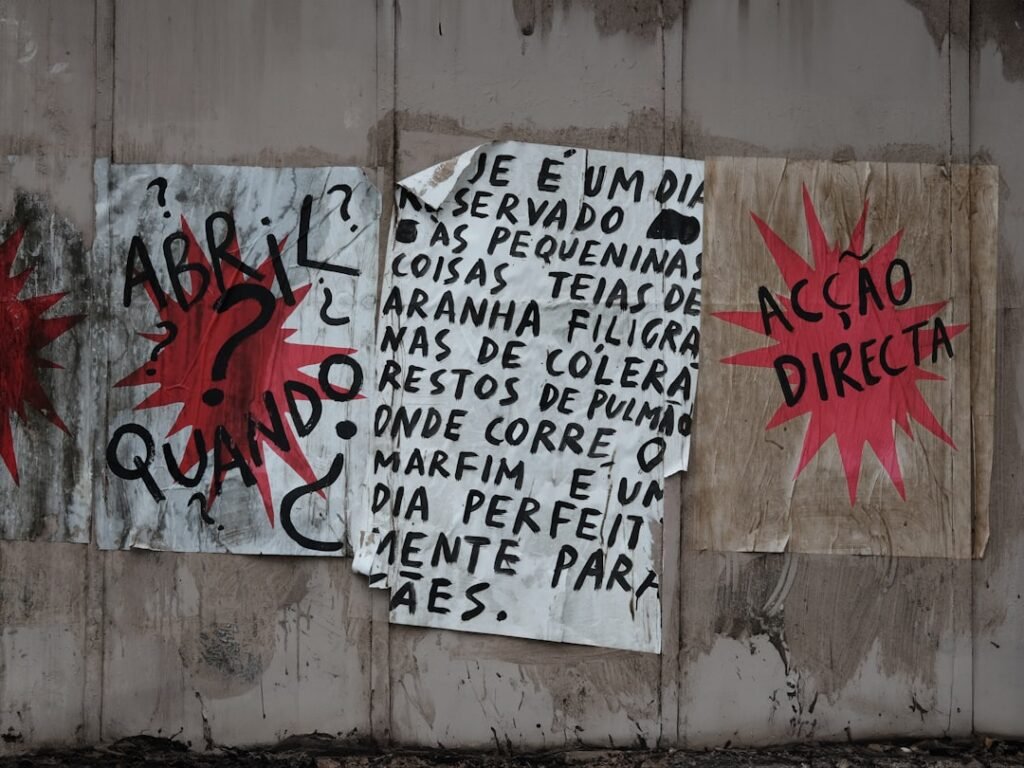 ?
?
ABRIL
?
?
?
QUANDO?
?
?
JE É UM DIA
RESERVADO
ÀS PEQUENINAS
COISAS TEIAS DE
ARANHA FILIGRA
NAS DE CÓLERA
RESTOS DE PULMÃO
ONDE CORRE O
MARFIM É UM
DIA PERFEIT
MENTE PARA
ÃES.
ACÇÃO
DIRECTA